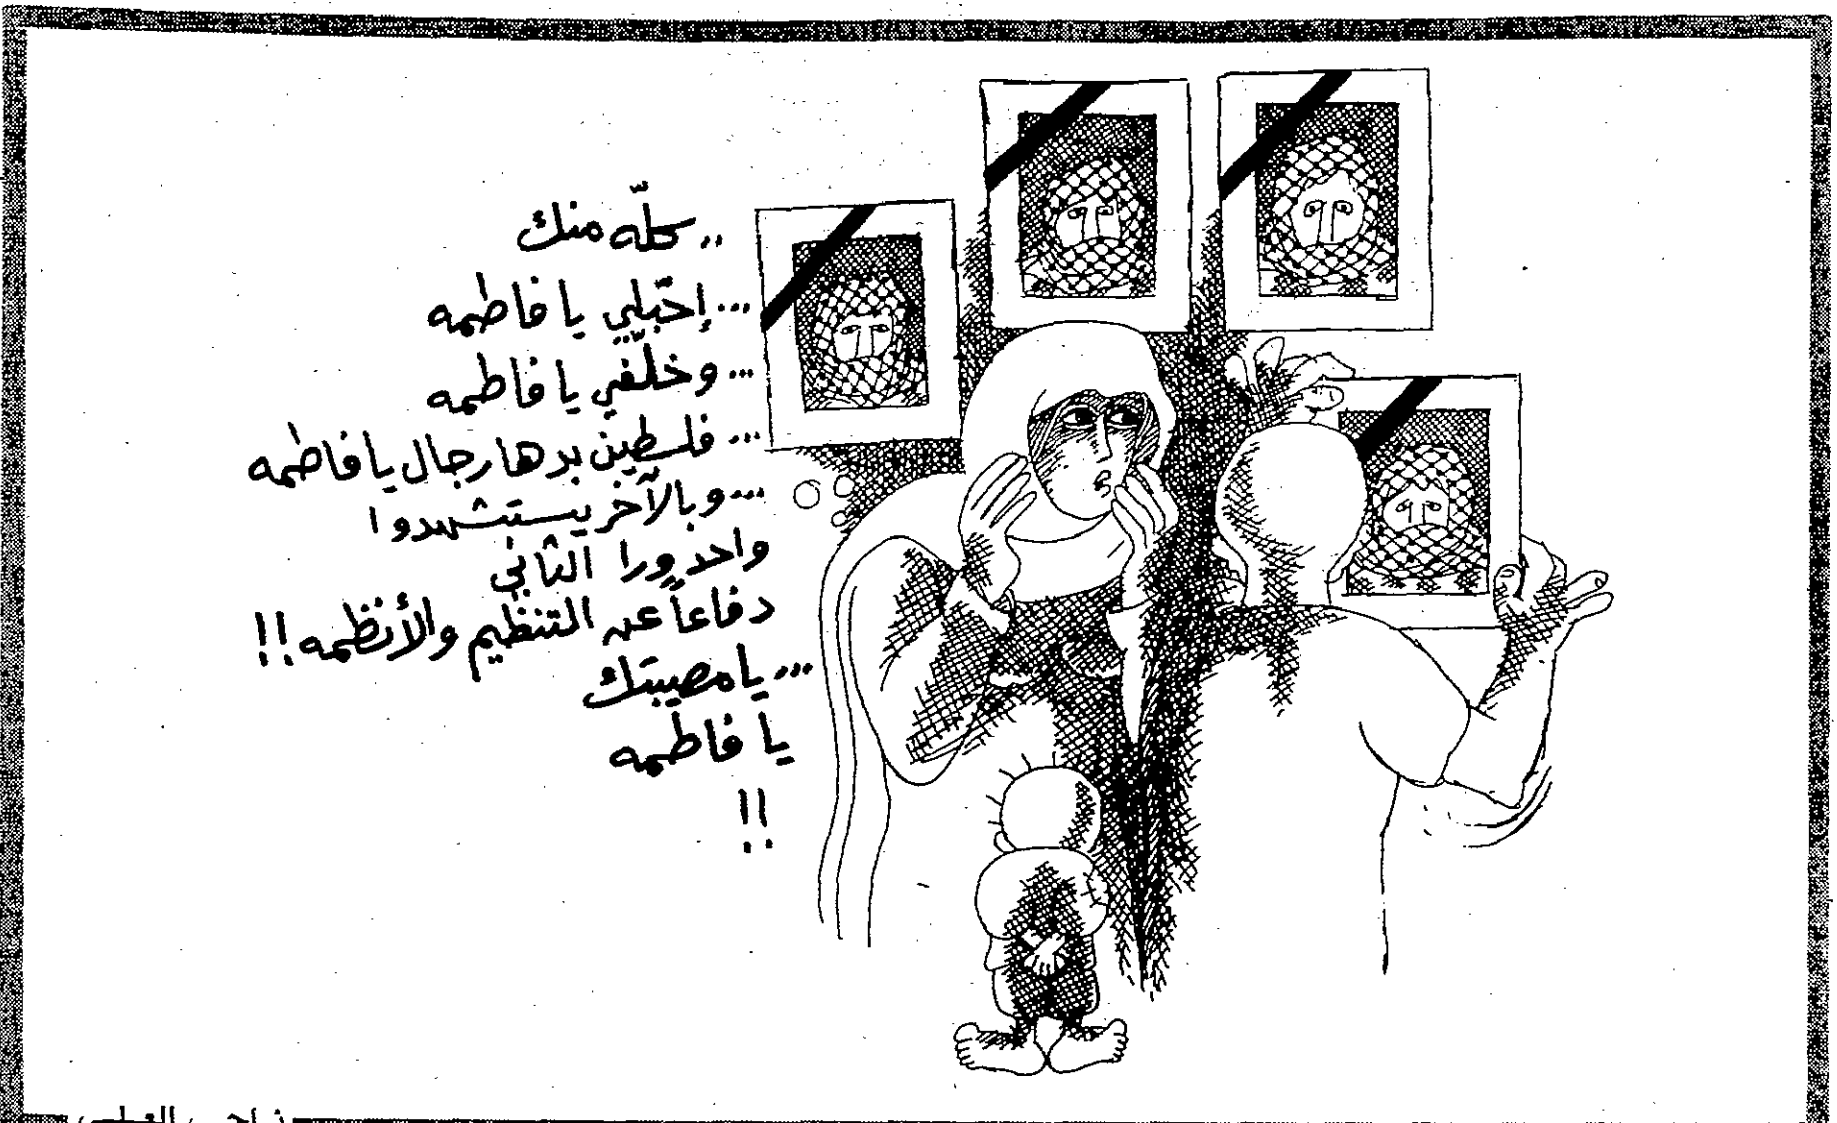 .. كلّه منك
... إحبَلي يا فاطمه
... وخلّفي يا فاطمه
... فلسطين بدها رجال يا فاطمه
... وبالآخر يستشهدوا
واحد ورا الثاني
دفاعاً عن التنظيم والأنظمه !!
... يا مصيبتك
يا فاطمه
!!
ناجي العلي